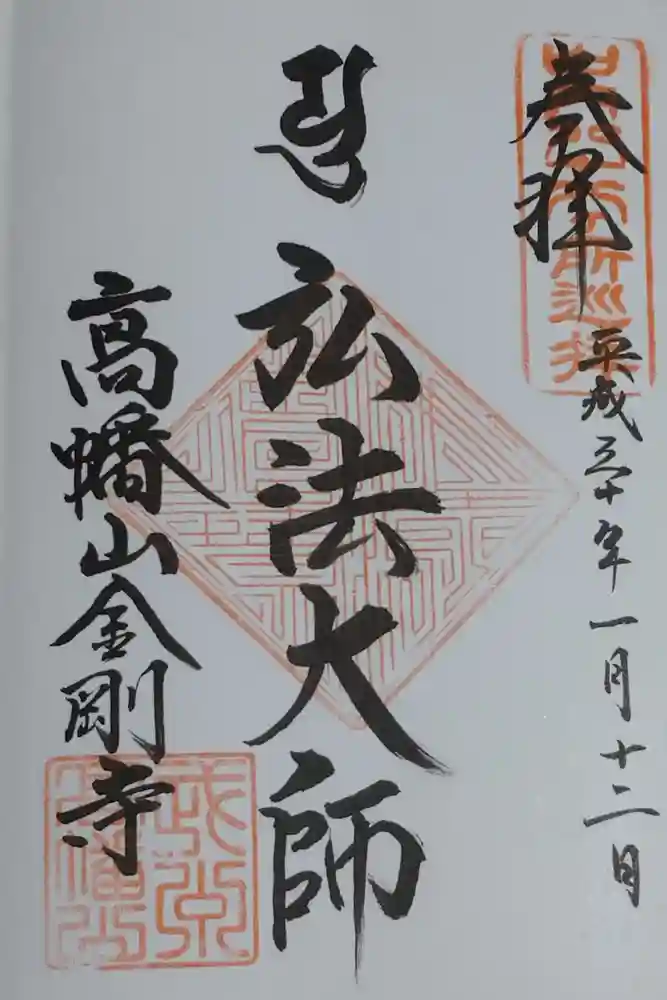 奉拝
平成三十年一月十二日
弘法大師
高幡山金剛寺